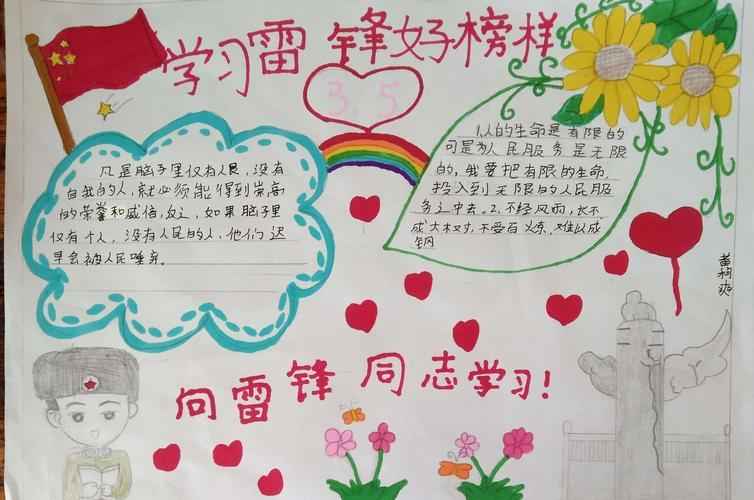 学习雷锋好榜样
3.5
凡是脑子里仅有人民，没有
自我的人，就必须能得到崇高
的荣誉和威信，反之，如果脑子里
仅有个人，没有人民的人，他们迟
早会被人民唾弃。
1.人的生命是有限的
可是为人民服务是无限
的，我要把有限的生命，
投入到无限的人民服
务之中去。2.不经风雨，长不
成大树，不受百炼，难以成
钢
向雷锋同志学习！